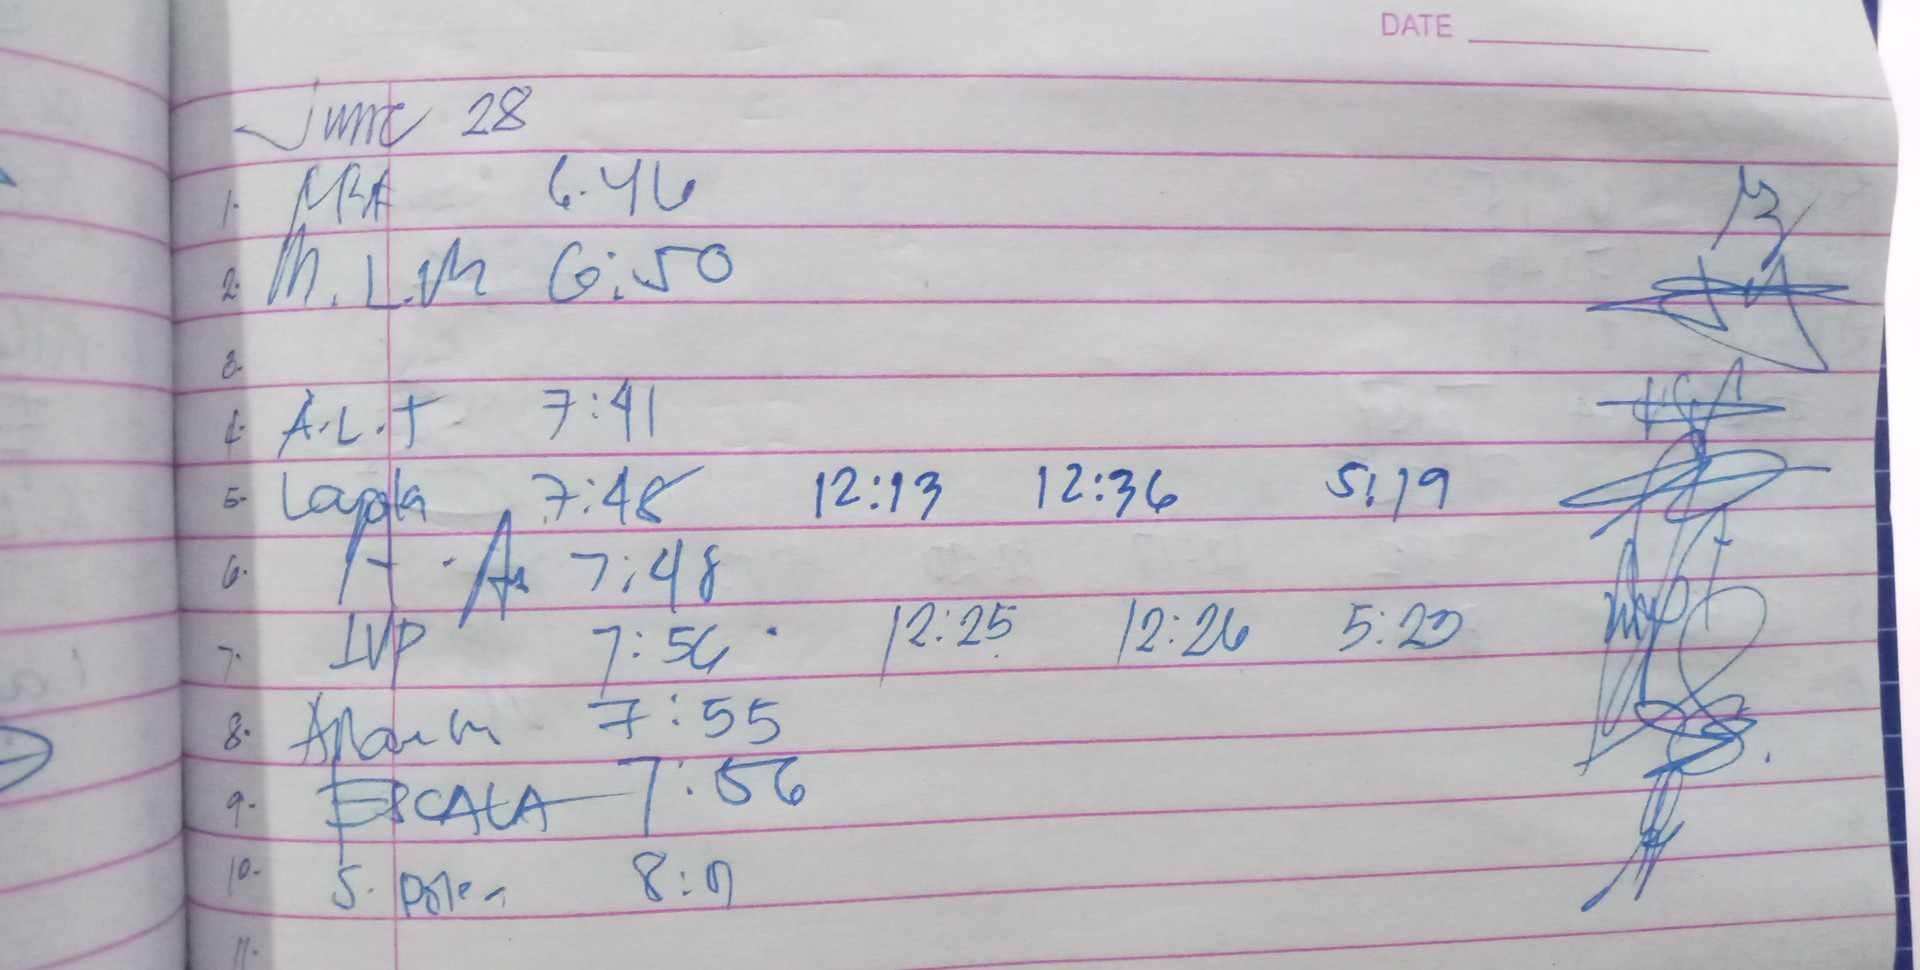 DATE
June 28
1. MRA 6:46
2. M.L.M 6:50
3.
4. A.L.T 7:41
5. Layola 7:48 12:13 12:36 5:19
6. 7:48
7. IVP 7:56 12:25 12:26 5:20
8. 7:55
9. ESCALA 7:56
10. S. 8:
11.